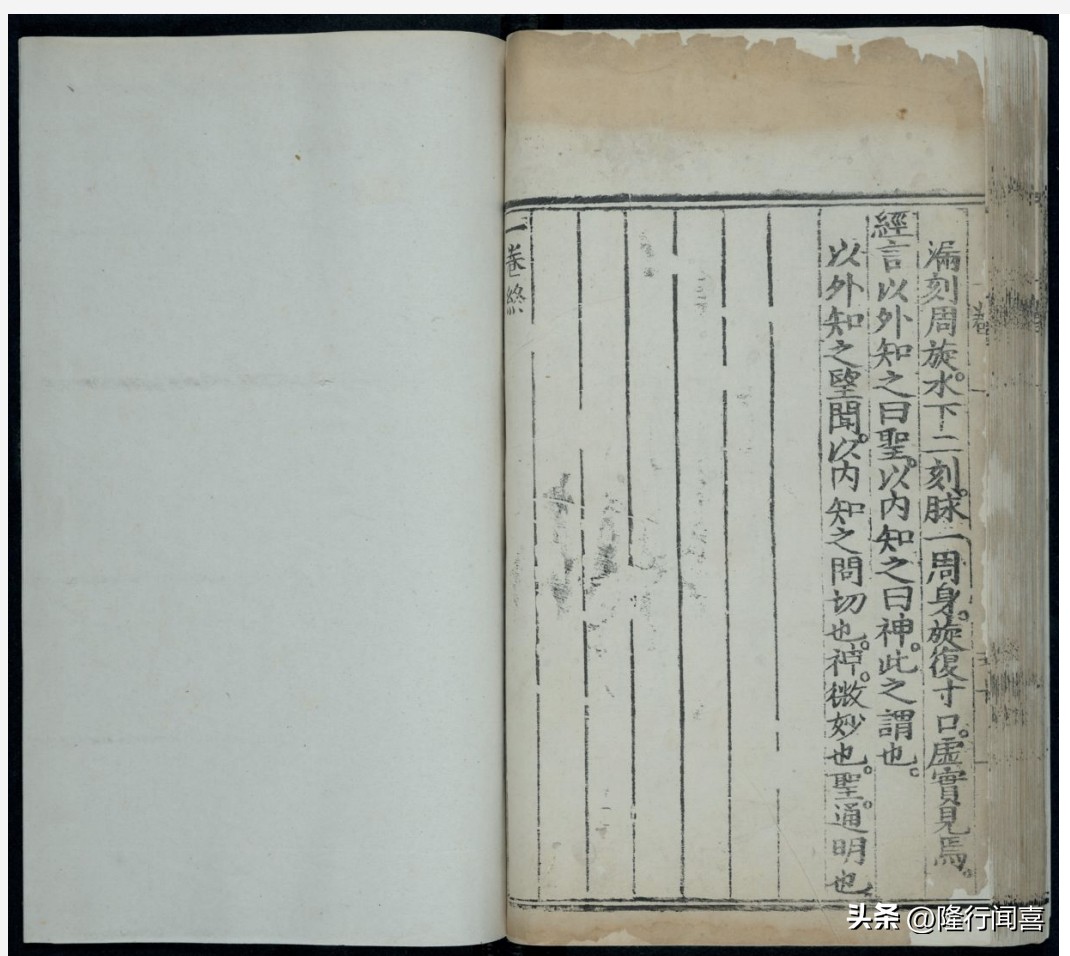 漏刻周旋。水下二刻。脉一周身。旋復寸口。虛實見焉。
經言以外知之曰聖。以内知之曰神。此之謂也。
以外知之望聞。以内知之問切也。神。微妙也。聖。通明也
一卷終
头条 @隆行闻喜